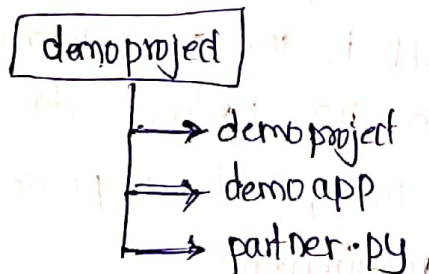 demoproject
demoproject
demoapp
partner.py